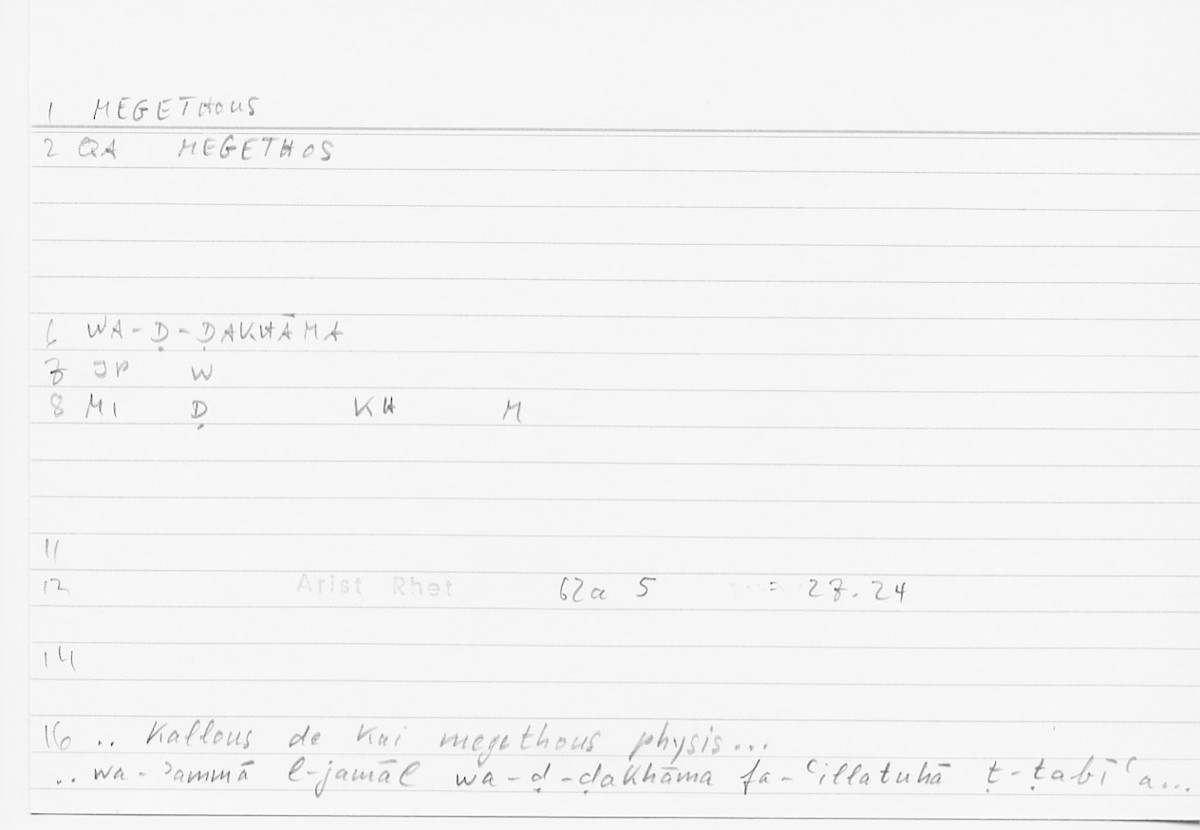 1 MEGETHOUS
2 QA MEGETHOS
6 WA-Ḍ-ḌAKHĀMA
7 JP W
8 MI Ḍ KH M
11
12 Arist Rhet 62a 5 = 27.24
14
16 .. Kallous de kai megethous physis...
.. wa-ʾammā l-jamāl wa-ḍ-ḍakhāma fa-ʿillatuhā ṭ-ṭabīʿa...